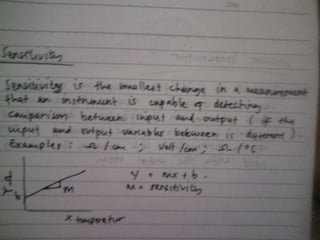 Sensitivity
Sensitivity is the smallest change in a measurement
that an instrument is capable of detecting.
Comparison between input and output (if the
input and output variables between is different).
Examples : Ω/cm ; Volt/cm ; Ω/°C
y = mx + b.
m = sensitivity
m
b
x temperatur